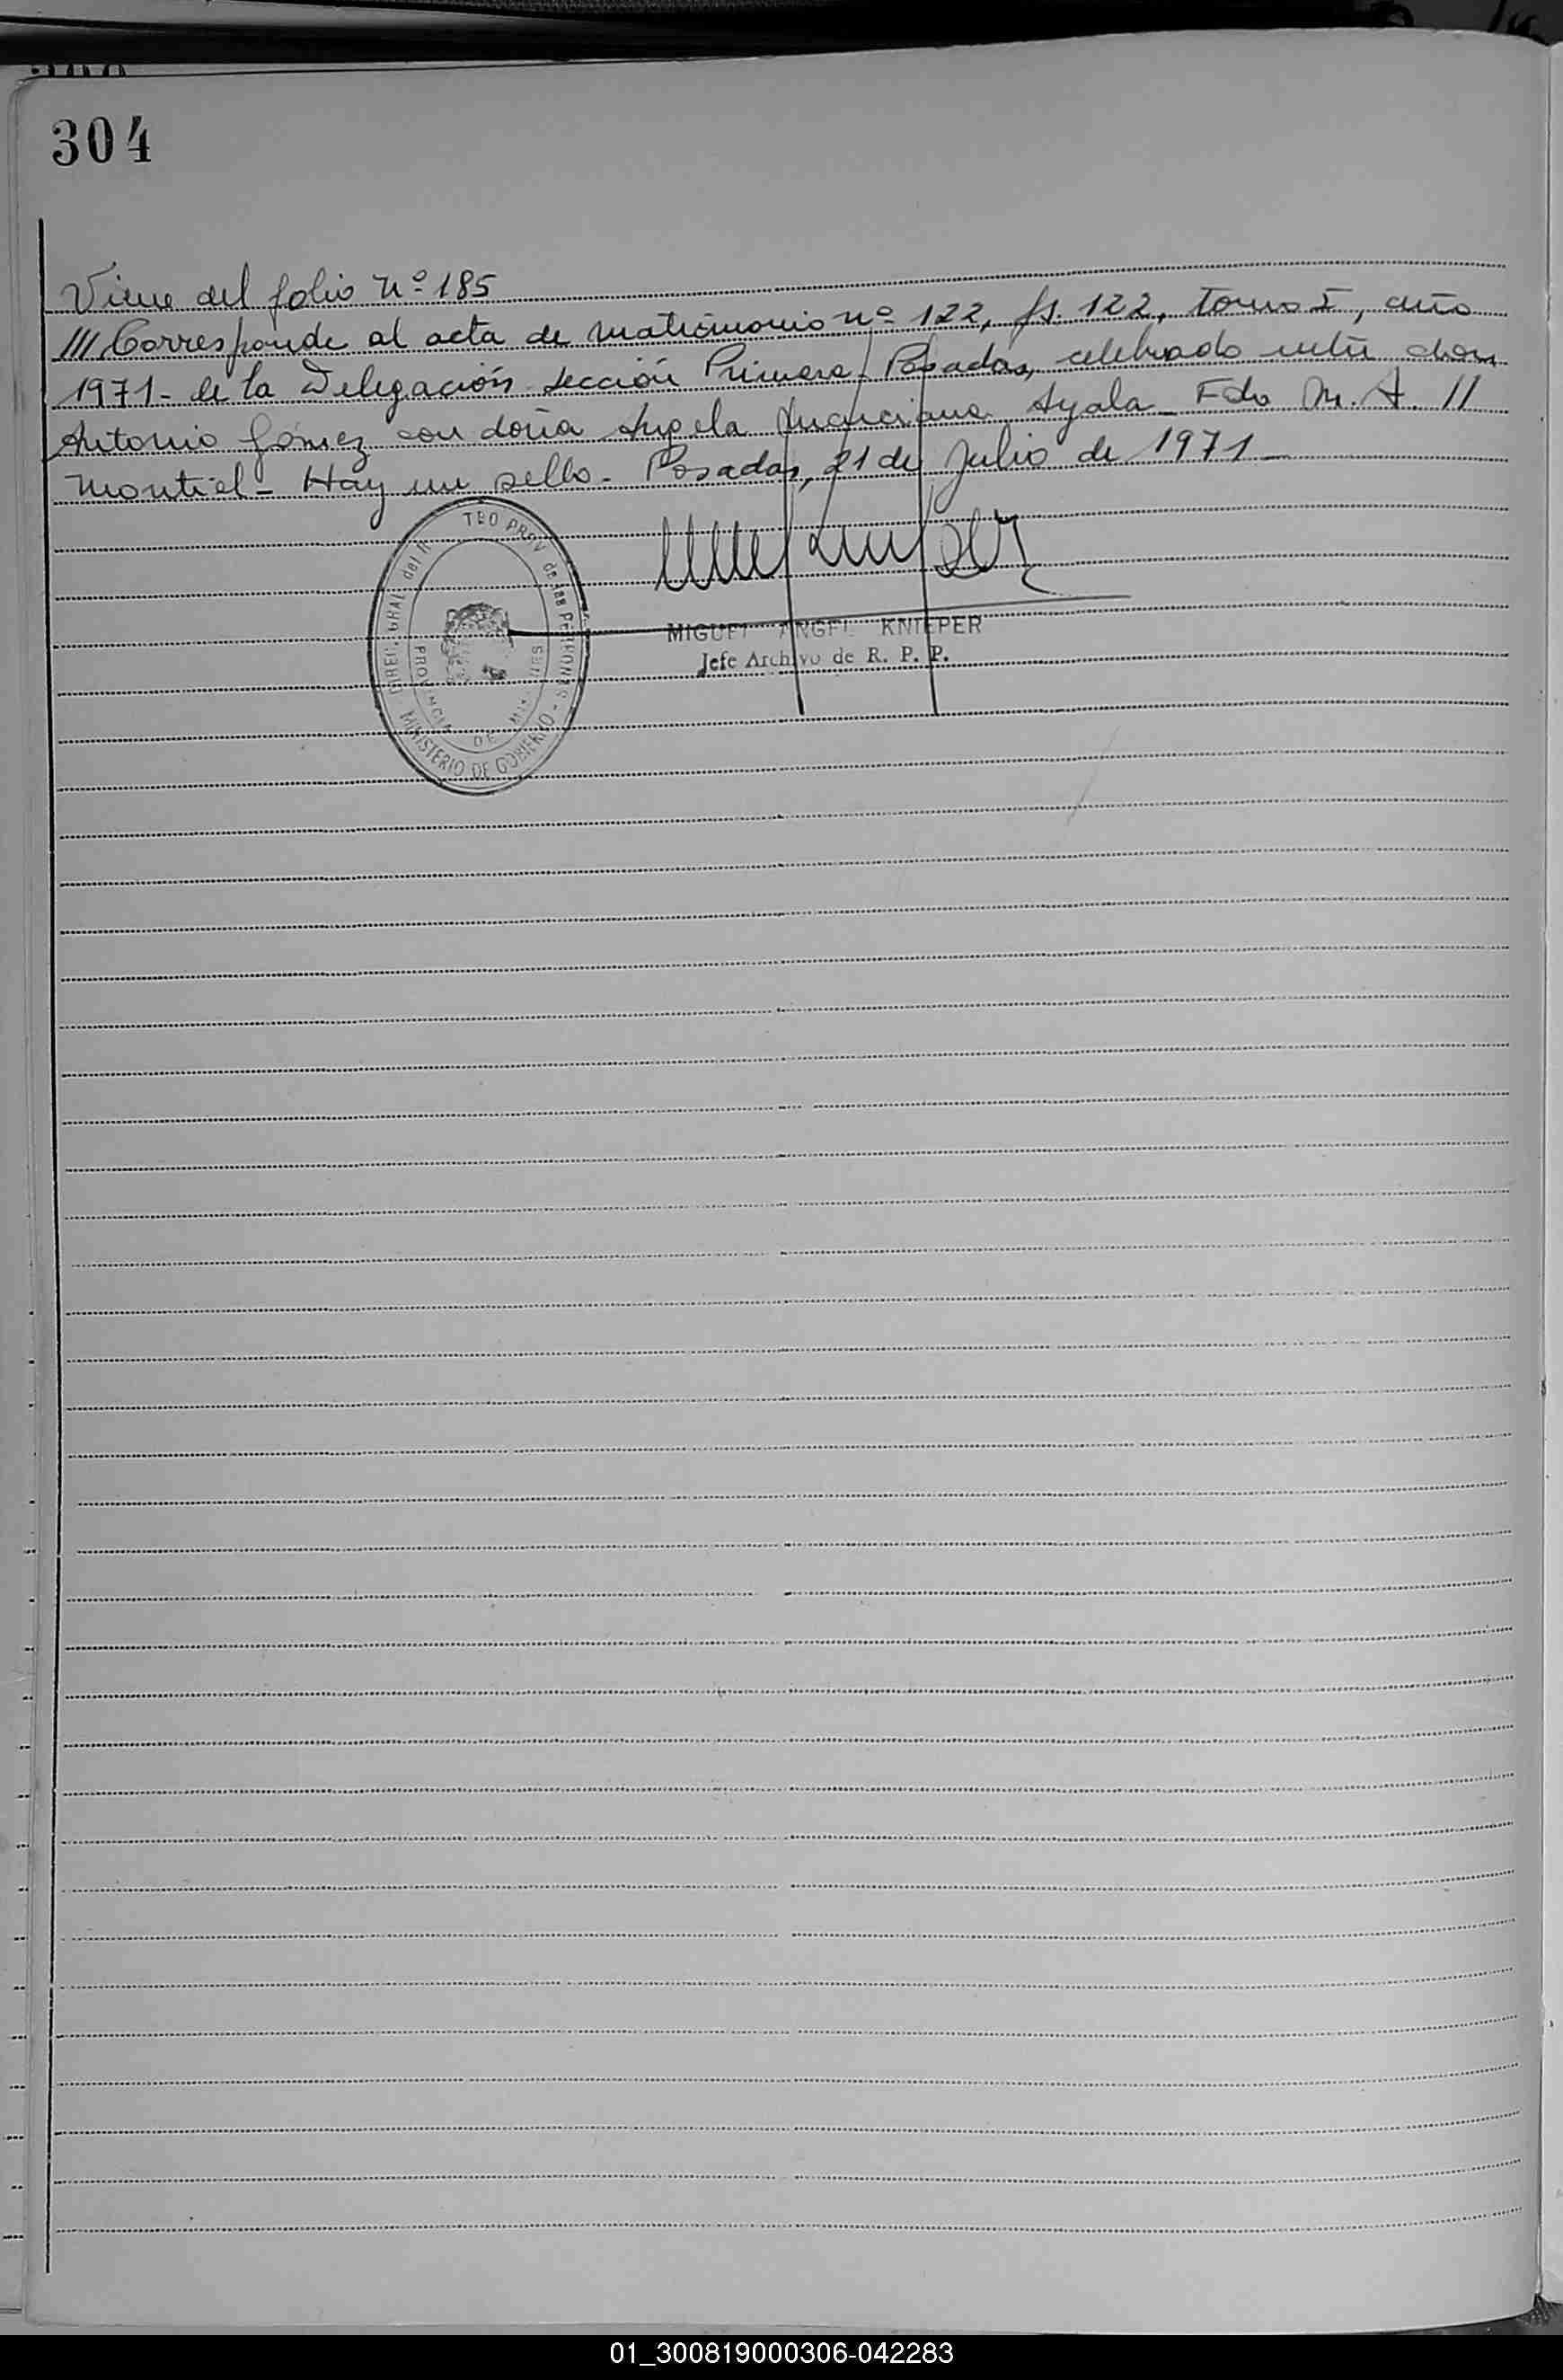 304
Viene del folio Nº 185
/// Corresponde al acta de matrimonio nº 122, fs. 122, tomo I, año
1971- de la Delegación Sección Primera Posadas, celebrado entre don
Antonio Gómez con doña Angela Ayala - Fdo M. A. //
Montiel - Hay un sello - Posadas, 21 de Julio de 1971 -
DIREC. GRAL del R TRO PROV de las PERSONAS -
MINISTERIO DE GOBIERNO -
PROVINCIA DE
MIGUEL ANGEL KNIEPER
Jefe Archivo de R. P. P.
01_300819000306-042283